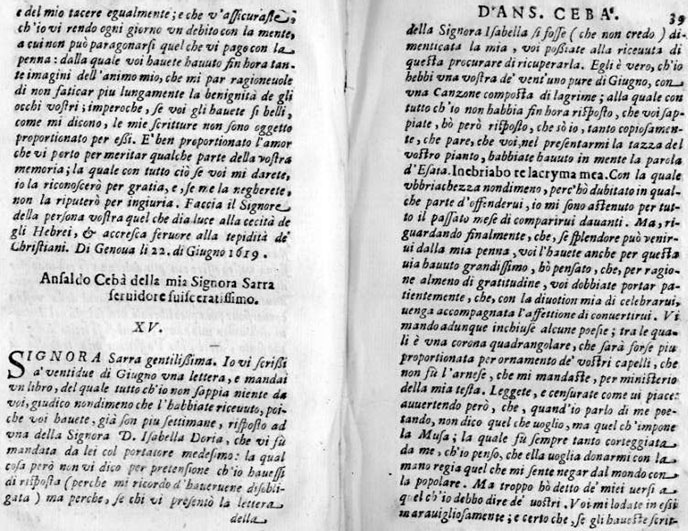 e del mio tacere egualmente; e che v'assicuraste,
ch'io vi rendo ogni giorno vn debito con la mente,
a cui non può paragonarsi quel che vi pago con la
penna: dalla quale voi hauete hauuto fin hora tan-
te imagini dell'animo mio, che mi par ragioneuole
di non faticar piu lungamente la benignità de gli
occhi vostri; imperoche, se voi gli hauete sì belli,
come mi dicono, le mie scritture non sono oggetto
proportionato per essi. E' ben proportionato l'amor
che vi porto per meritar qualche parte della vostra
memoria; la quale con tutto ciò se voi mi darete,
io la riconoscerò per gratia; e, se me la negherete,
non la riputerò per ingiuria. Faccia il Signore
della persona vostra quel che dia luce alla cecità de
gli Hebrei, & accresca feruore alla tepidità de'
Christiani. Di Genoua li 22. di Giugno 1619.
Ansaldo Cebà della mia Signora Sarra
seruidore suisceratissimo.
XV.
SIGNORA Sarra gentilissima. Io vi scrissi
a' ventidue di Giugno vna lettera, e mandai
vn libro, del quale tutto ch'io non sappia niente da
voi, giudico nondimeno che l'habbiate riceuuto, poi-
che voi hauete, già son piu settimane, risposto ad
vna della Signora D. Isabella Doria, che vi fù
mandata da lei col portatore medesimo: la qual
cosa però non vi dico per pretensione ch'io hauessi
di risposta (perche mi ricordo d'haueruene disobli-
gata) ma perche, se chi vi presentò la lettera
della
D'ANS. CEBA'. 39
della Signora Isabella si fosse (che non credo) di-
menticata la mia, voi possiate alla riceuuta di
questa procurare di ricuperarla. Egli è vero, ch'io
hebbi vna vostra de' vent'uno pure di Giugno, con
vna Canzone composta di lagrime; alla quale con
tutto ch'io non habbia fin hora risposto, che voi sap-
piate, hò però risposto, che sò io, tanto copiosamen-
te, che pare, che voi, nel presentarmi la tazza del
vostro pianto, habbiate hauuto in mente la parola
d'Esaia. Inebriabo te lacryma mea. Con la quale
vbbriachezza nondimeno, perc'hò dubitato in qual-
che parte d'offenderui, io mi sono attenuto per tut-
to il passato mese di comparirui dauanti. Ma, ri-
guardando finalmente, che, se splendore può venir-
ui dalla mia penna, voi l'hauete anche per questa
uia hauuto grandissimo, hò pensato, che, per ragio-
ne almeno di gratitudine, voi dobbiate portar pa-
tientemente, che, con la diuotion mia di celebrarui,
uenga accompagnata l'affettione di conuertirui. Vi
mando adunque inchiuse alcune poesie; tra le qua-
li è vna corona quadrangolare, che sarà forse piu
proportionata per ornamento de' vostri capelli, che
non fù l'arnese, che mi mandaste, per ministerio
della mia testa. Leggete, e censurate come ui piace:
auuertendo però, che, quand'io parlo di me poe-
tando, non dico quel che uoglio, ma quel ch'impone
la Musa; la quale fù sempre tanto corteggiata
da me, ch'io penso, che ella uoglia donarmi con la
mano regia quel che mi sente negar dal mondo con
la popolare. Ma troppo hò detto de' miei uersi a
quel ch'io debbo dire de' uostri. Voi mi lodate in essi
marauigliosamente; e certo che, se gli haueste scrit-